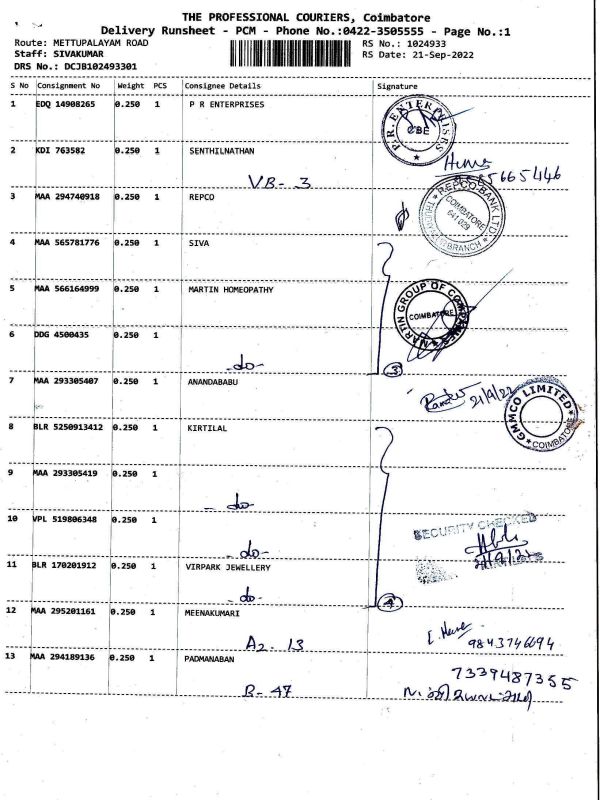 THE PROFESSIONAL COURIERS, Coimbatore
Delivery Runsheet - PCM - Phone No.:0422-3505555 - Page No.:1
Route: METTUPALAYAM ROAD RS No.: 1024933
Staff: SIVAKUMAR RS Date: 21-Sep-2022
DRS No.: DCJB102493301
S No Consignment No Weight PCS Consignee Details Signature
1 EDQ 14908265 0.250 1 P R ENTERPRISES
P.R. ENTERPRISES CBE
2 KDI 763582 0.250 1 SENTHILNATHAN
VB- 3
3 MAA 294740918 0.250 1 REPCO
REPCO BANK LTD. COIMBATORE 641 029 BRANCH
4 MAA 565781776 0.250 1 SIVA
5 MAA 566164999 0.250 1 MARTIN HOMEOPATHY
MARTIN GROUP OF COMPANIES COIMBATORE
6 DDG 4500435 0.250 1
-do-
3
7 MAA 293305407 0.250 1 ANANDABABU
21/9/22
GMMCO LIMITED COIMBATORE
8 BLR 5250913412 0.250 1 KIRTILAL
9 MAA 293305419 0.250 1
-do-
10 VPL 519806348 0.250 1
SECURITY CHECKED
-do-
11 BLR 170201912 0.250 1 VIRPARK JEWELLERY
-do-
4
12 MAA 295201161 0.250 1 MEENAKUMARI
A2- 13
9843746694
13 MAA 294189136 0.250 1 PADMANABAN
7339487355
B- 47